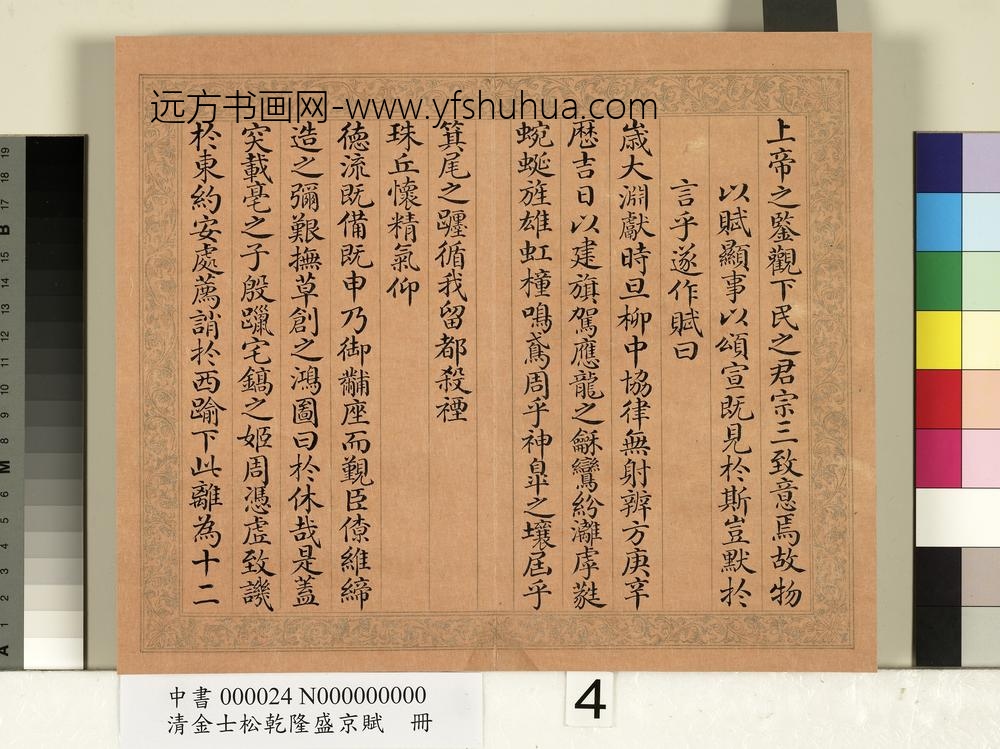 远方书画网-www.yfshuhua.com
上帝之鑒觀下民之君宗三致意焉故物
以賦顯事以頌宣既見於斯豈默於
言乎遂作賦曰
歲大淵獻時旦柳中協律無射辨方庚辛
歷吉日以建旗駕應龍之龢鸞紛灕虖蕤
蜿蜒旌雄虹橦鳴鳶周乎神皐之壤屆乎
箕尾之躔循我留都殺禋
珠丘懷精氣仰
德流既備既申乃御黼座而覲臣僚維締
造之彌艱撫草創之鴻圖曰於休哉是蓋
突載亳之子殷躐宅鎬之姬周憑虛致譏
於東約安處薦誚於西踰下此離為十二
中書 000024 N000000000
清金士松乾隆盛京賦 冊
4
19
18
17
B
15
14
13
12
11
10
9
8
M
6
5
4
3
2
1
A